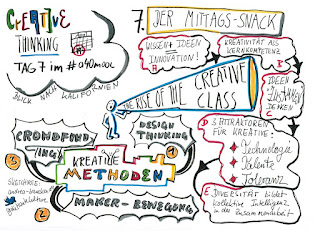 CREATIVE
THINKING
TAG 7 im #a40mooc
BLICK NACH KALIFORNIEN
7. DER MITTAGS-SNACK
WISSEN + IDEEN
= INNOVATION!
B
KREATIVITÄT ALS
KERNKOMPETENZ
A
THE RISE OF THE CREATIVE
CLASS
IDEEN
ZUSAMMEN
DENKEN
C
D 3 ATTRAKTOREN
FÜR KREATIVE:
Technologie
Talente
Toleranz
E DIVERSITÄT bildet
kollektive Intelligenz
in der Zusammenarbeit
CROWDFUND-
ING!
3
DESIGN
THINKING
1
KREATIVE
METHODEN
MAKER-BEWEGUNG
2